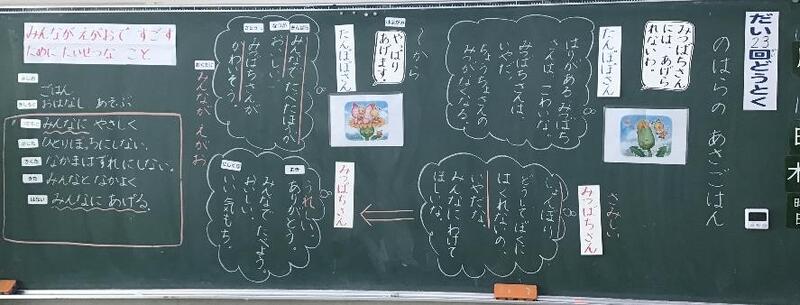 だい23回どうとく
のはらの あさごはん
みつばちさん
には あげら
れないわ。
たんぽぽさん
はりがあるみつばち
さんは、こわいな。
いやだ。
みつばちさんは、
ちょうちょさんの
みつがなくなる。
さみしい
みつばちさん
しょんぼり
どうしてぼくに
はくれないの。
いやだな。
みんなにわけて
ほしいな。
〜から
やっぱり
あげます。
たんぽぽさん
みんなでたべたほうが
おいしい。
みつばちさんが
かわいそう
みつばちさん
うれしい
ありがとう。
みんなでたべよう。
おいしい。
いい気もち。
みんながえがお
みんながえがおで すごす
ために たいせつな こと
ごはん
おはなし あそぶ
みんなに やさしく
ひとりぼっちにしない。
なかまはずれにしない。
みんなとなかよく
みんなに あげる。